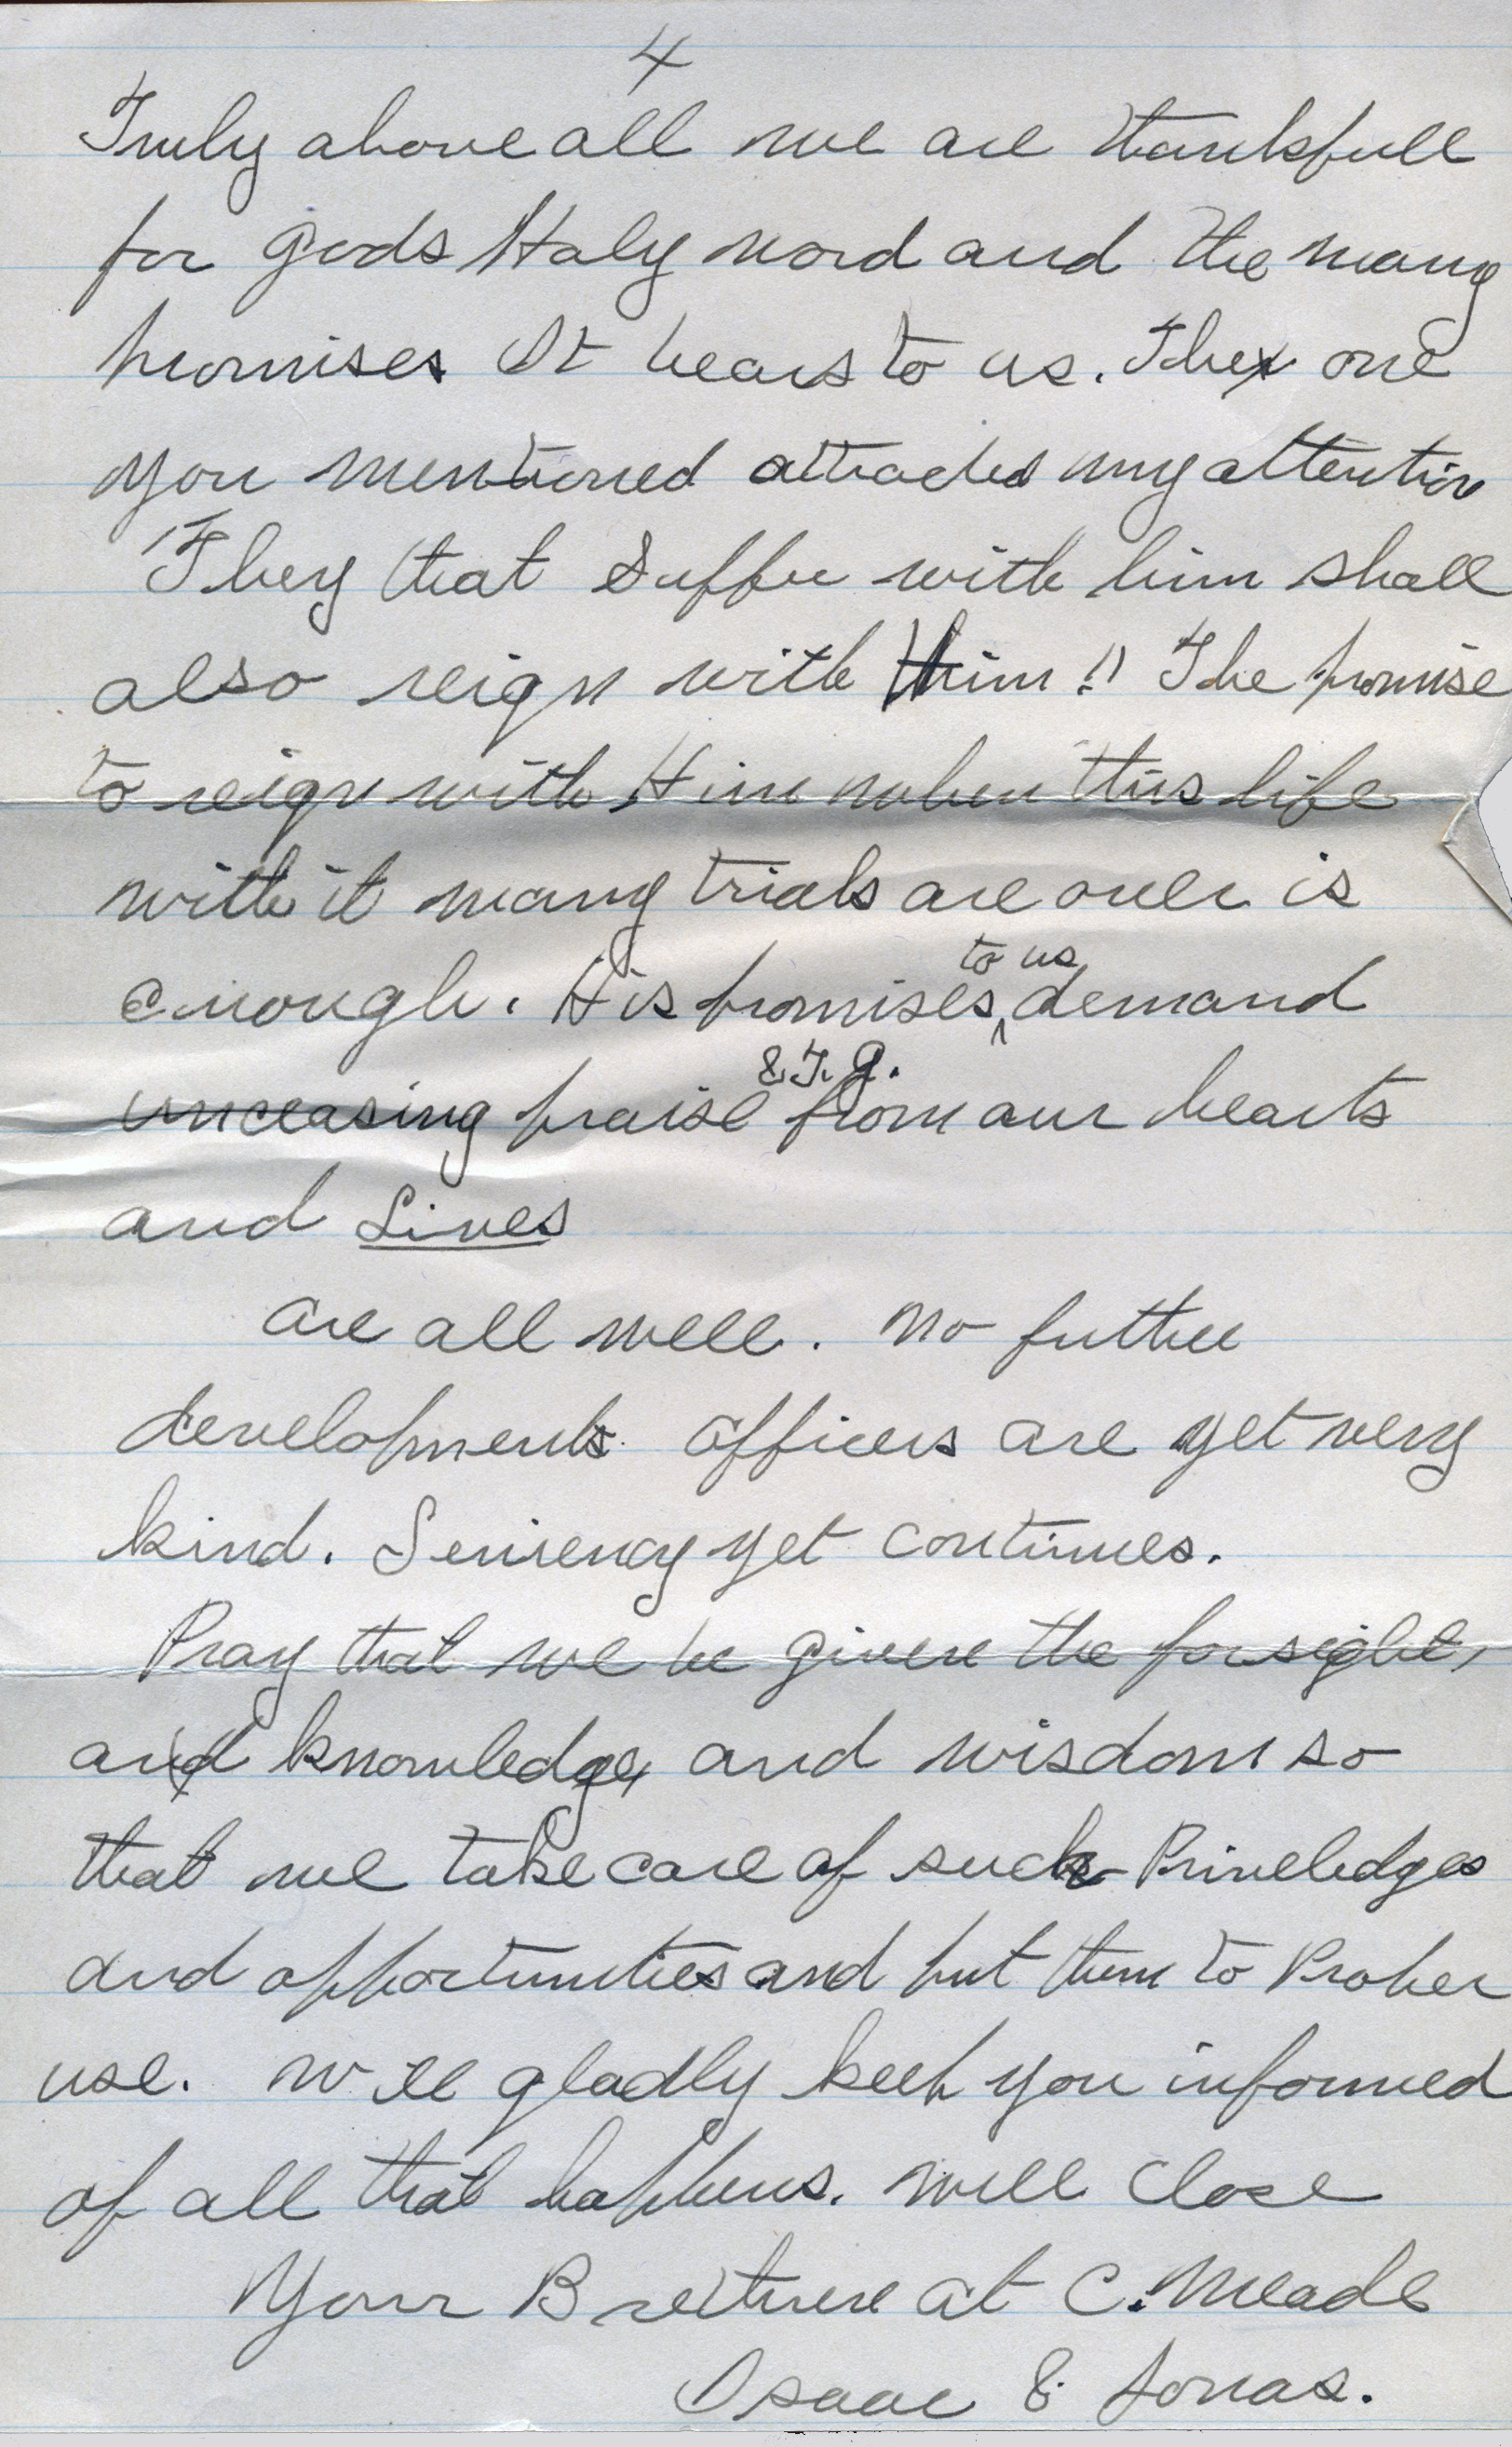 4
Truly above all we are thankfull
for gods Holy word and the many
promises It bears to us. The one
you mentioned attracted my attention
"They that Suffer with him shall
also reign with Him!! The promise
to reign with Him when this life
with it many trials are over is
enough. His promises to us demand
unceasing praise & T.g. from our hearts
and Lives
are all well. No futher
developments officers are yet very
kind. Leniency yet continues.
Pray that we be given the forsight,
and knowledge, and wisdom so
that we take care of such Priveledges
and opportunities and put them to Proper
use. Will gladly keep you informed
of all that happens. Will Close
Your Brethren at C. Meade
Isaac & Jonas.